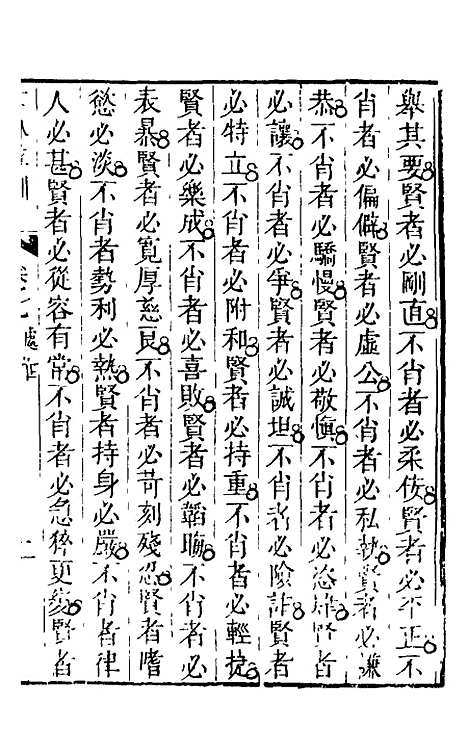 舉其要賢者必剛直不肖者必柔佞賢者必平正不
肖者必偏僻賢者必虛公不肖者必私執賢者必謙
恭不肖者必驕慢賢者必敬愼不肖者必恣肆賢者
必讓不肖者必爭賢者必誠坦不肖者必險詐賢者
必特立不肖者必附和賢者必持重不肖者必輕捷
賢者必樂成不肖者必喜敗賢者必韜晦不肖者必
表暴賢者必寬厚慈良不肖者必苛刻殘忍賢者嗜
慾必淡不肖者勢利必熱賢者持身必嚴不肖者律
人必甚賢者必從容有常不肖者必急猝更變賢者
卷之七